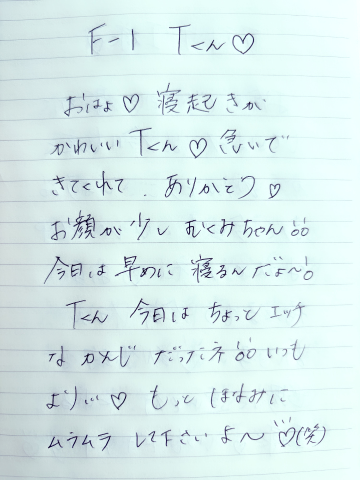 F-1 Tくん♡
おはよ♡ 寝起きが
かわいい Tくん♡ 急いで
きてくれて、ありがとう♡
お顔が少し むくみちゃん
今日は 早めに 寝るんだよ〜!
Tくん 今日は ちょっと エッチ
な カンじ だったネ いつも
より♡ もっと ほなみに
ムラムラ して下さいよ〜♡(笑)